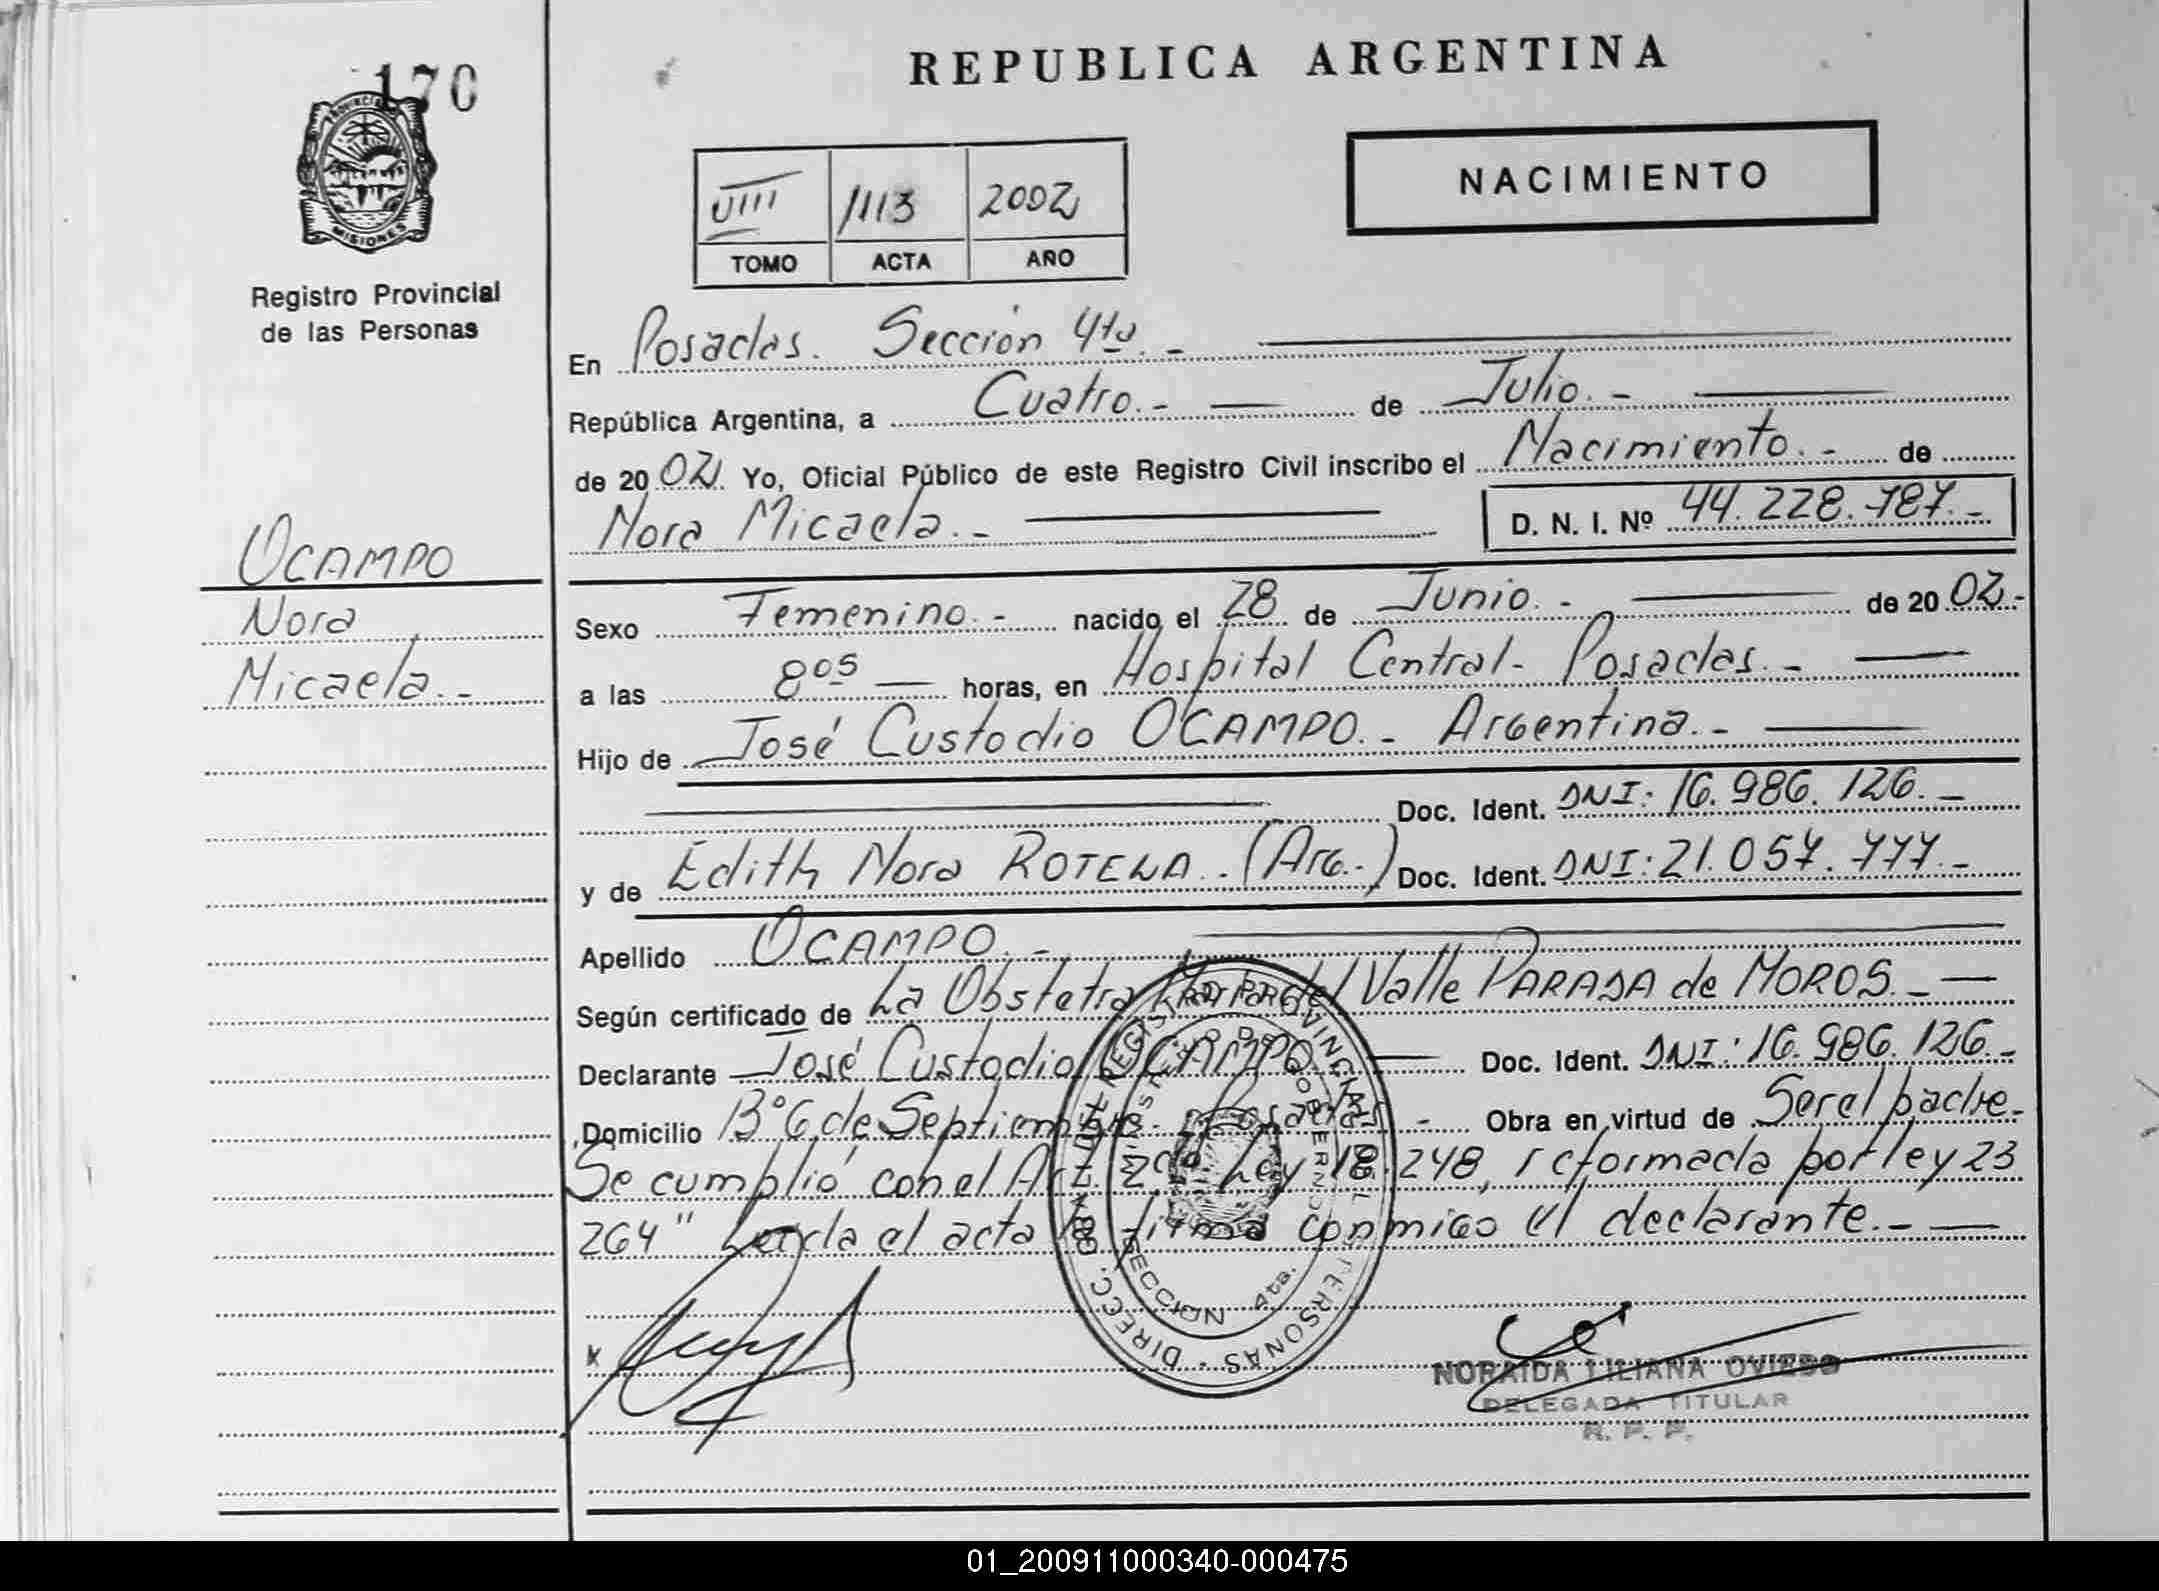 170
PROVINCIA DE
MISIONES
Registro Provincial
de las Personas
REPUBLICA ARGENTINA
NACIMIENTO
VIII 1113 2002
TOMO ACTA AÑO
En Posadas. Sección 4ta. -
República Argentina, a Cuatro. - de Julio. -
de 20 02. Yo, Oficial Público de este Registro Civil inscribo el Nacimiento. - de
Nora Micaela. - D. N. I. Nº 44.228.787. -
OCAMPO
Nora
Micaela. -
Sexo Femenino. - nacido el 28 de Junio. - de 20 02. -
a las 8os horas, en Hospital Central - Posadas. -
Hijo de José Custodio OCAMPO. - Argentina. -
Doc. Ident. DNI: 16.986.126. -
y de Edith Nora ROTELA. - (Arg.-) Doc. Ident. DNI: 21.057.777. -
Apellido OCAMPO. -
Según certificado de La Obstetra del Valle PARADA de MOROS. -
Declarante José Custodio OCAMPO Doc. Ident. DNI: 16.986.126. -
Domicilio B° 6 de Septiembre - Posadas - Obra en virtud de Ser el padre. -
Se cumplió con el Art. 2do Ley 18.248, reformada por ley 23
264" Leída el acta la firma conmigo el declarante. -
DIRECC. GRAL. DEL REGISTRO PROVINCIAL DE LAS PERSONAS
MINISTERIO DE GOBIERNO
SECCION 4ta.
NORAIDA LILIANA OVIEDO
DELEGADA TITULAR
R. P. P.
01_200911000340-000475